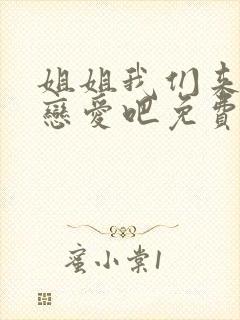 姐姐我们来
恋爱吧免费
蜜小棠1